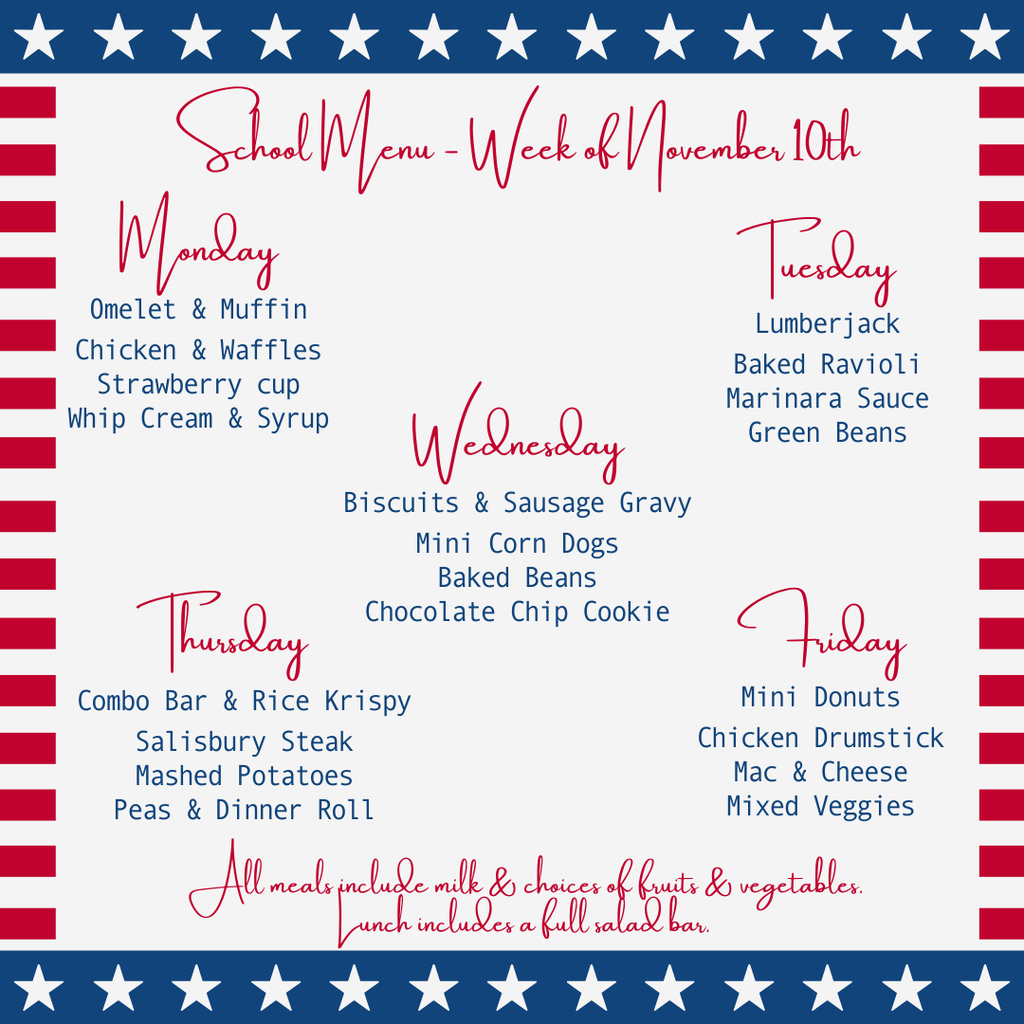 School Menu - Week of November 10th
Monday
Omelet & Muffin
Chicken & Waffles
Strawberry cup
Whip Cream & Syrup
Tuesday
Lumberjack
Baked Ravioli
Marinara Sauce
Green Beans
Wednesday
Biscuits & Sausage Gravy
Mini Corn Dogs
Baked Beans
Chocolate Chip Cookie
Thursday
Combo Bar & Rice Krispy
Salisbury Steak
Mashed Potatoes
Peas & Dinner Roll
Friday
Mini Donuts
Chicken Drumstick
Mac & Cheese
Mixed Veggies
All meals include milk & choices of fruits & vegetables.
Lunch includes a full salad bar.